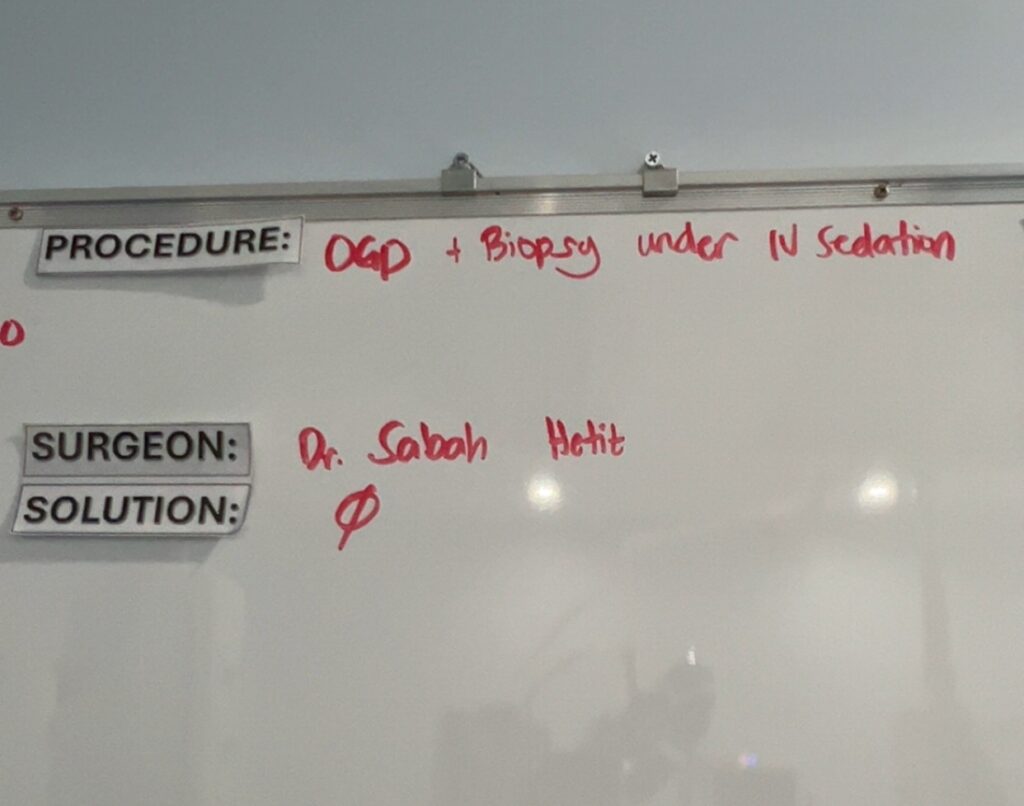 PROCEDURE: OGD + Biopsy under IV Sedation
O
SURGEON: Dr. Sabah Hetit
SOLUTION: Ø